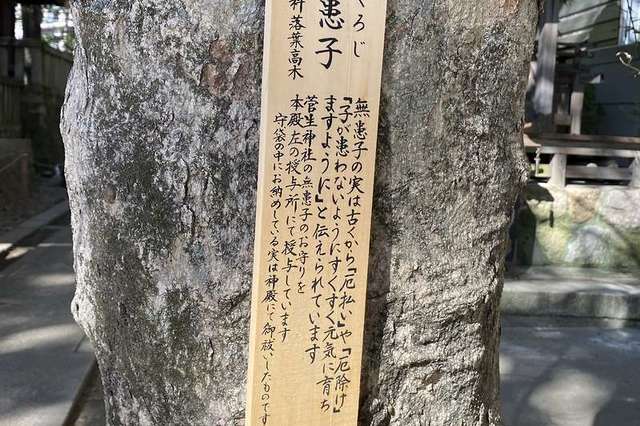 くろじ
患子
科落葉高木
無患子の実は古くから「厄払い」や「厄除け」
「子が患わないようにすくすく元気に育ち
ますように」と伝えられています
菅生神社の無患子のお守りを
本殿左の授与所にて授与しています
守袋の中にお納めしている実は神殿にて御祓いしたものです